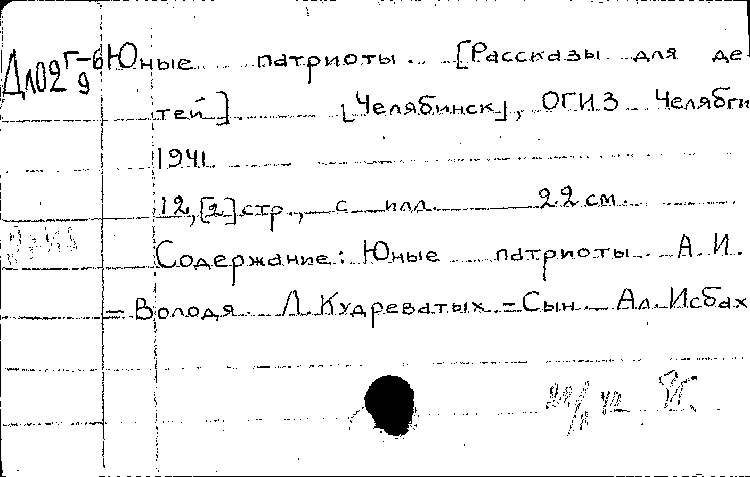 Дл02 Г-6/9 Юные патриоты. [Рассказы для де
тей]. [Челябинск], ОГИЗ Челябги
1941
12,[2]стр., с илл. 22 см.
Содержание: Юные патриоты А. И.
= Володя. Л. Кудреватых = Сын. Ал. Исбах